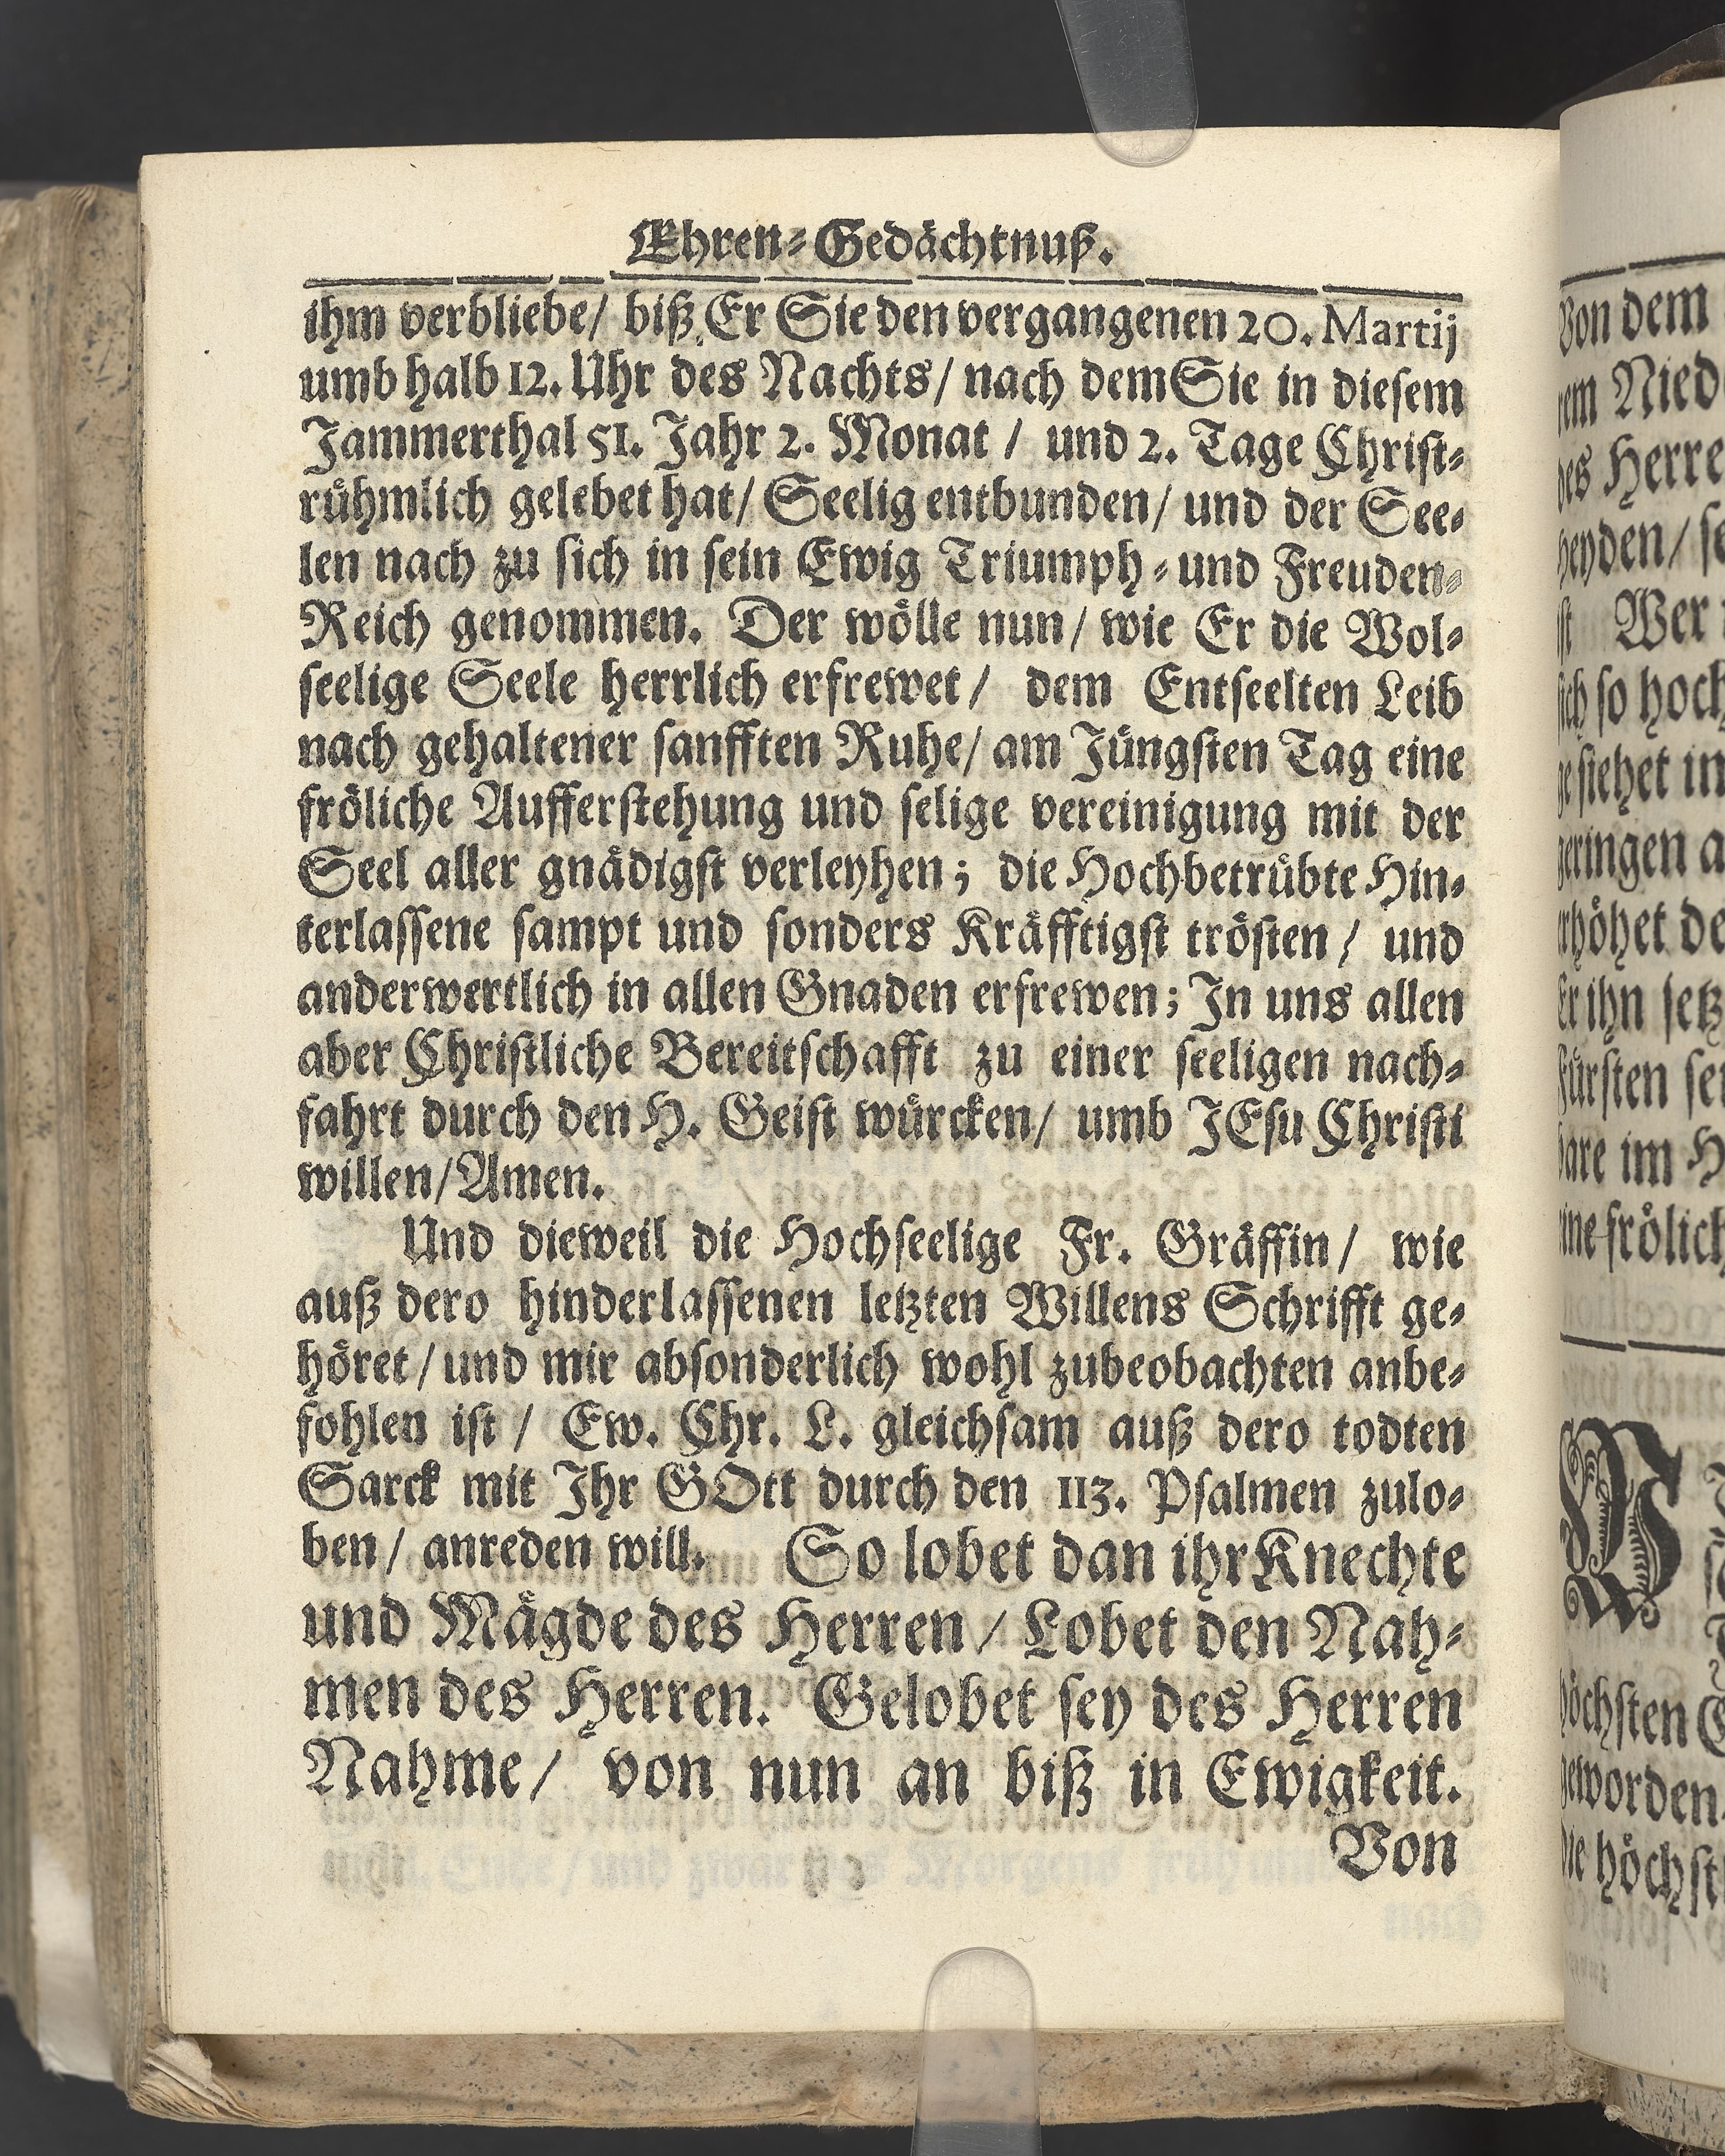 Ehren-Gedächtnuß.
ihm verbliebe/ biß Er Sie den vergangenen 20. Martij
umb halb 12. Uhr des Nachts/ nach dem Sie in diesem
Jammerthal 51. Jahr 2. Monat / und 2. Tage Christ-
rühmlich gelebet hat/ Seelig entbunden/ und der See-
len nach zu sich in sein Ewig Triumph- und Freuden-
Reich genommen. Der wölle nun/ wie Er die Wol-
seelige Seele herrlich erfrewet/ dem Entseelten Leib
nach gehaltener sanfften Ruhe/ am Jüngsten Tag eine
fröliche Aufferstehung und selige vereinigung mit der
Seel aller gnädigst verleyhen; die Hochbetrübte Hin-
terlassene sampt und sonders Kräfftigst trösten/ und
anderwertlich in allen Gnaden erfrewen; In uns allen
aber Christliche Bereitschafft zu einer seeligen nach-
fahrt durch den H. Geist würcken/ umb JEsu Christi
willen/ Amen.
Und dieweil die Hochseelige Fr. Gräffin/ wie
auß dero hinderlassenen letzten Willens Schrifft ge-
höret/ und mir absonderlich wohl zubeobachten anbe-
fohlen ist / Ew. Chr. L. gleichsam auß dero todten
Sarck mit Ihr GOtt durch den 113. Psalmen zulo-
ben/ anreden will. So lobet dan ihr Knechte
und Mägde des Herren/ Lobet den Nah-
men des Herren. Gelobet sey des Herren
Nahme/ von nun an biß in Ewigkeit.
Von
Von dem
Wer
so hoch
siehet in
geringen
im
höchsten
geworden.